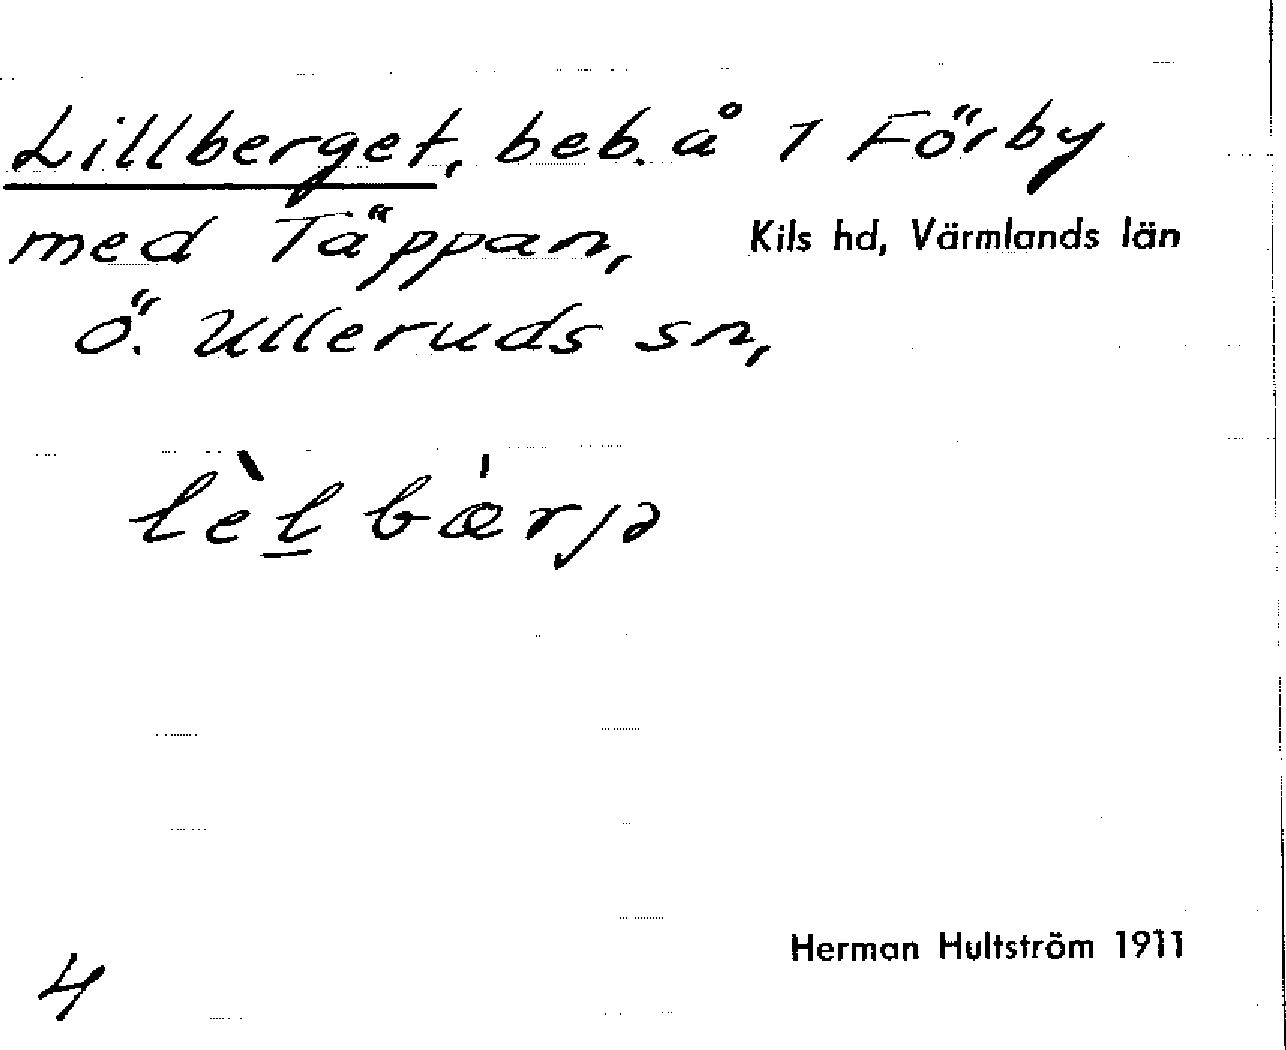 Lillberget, beb. å 1 Förby
med Täppan, Kils hd, Värmlands län
Ö. Ulleruds sn,
lèl̲ bæ̍rjə
Herman Hultström 1911
4